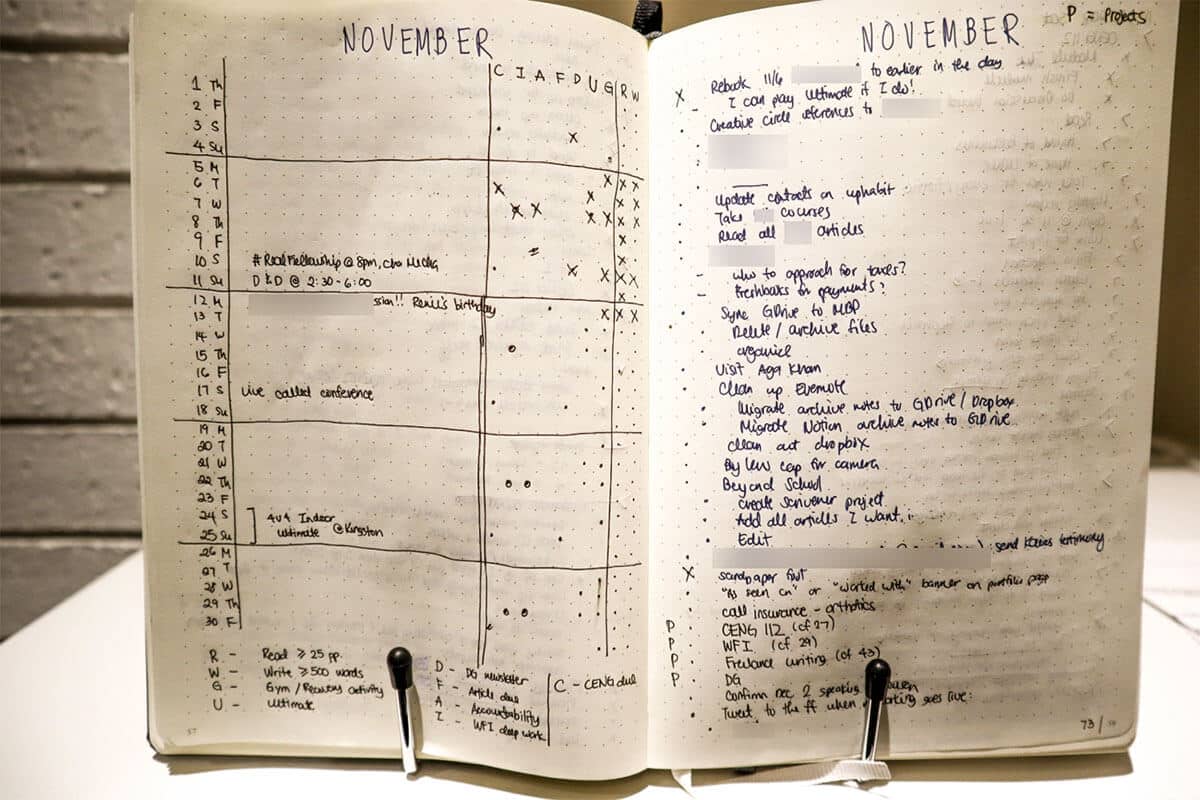 NOVEMBER
C I A F D U G R W
1 Th
2 F
3 S
4 Su
5 M
6 T
7 W
8 Th
9 F
10 S #RealFellowship @ 8pm, cho
11 Su D&D @ 2:30-6:00
12 M ssion!! Renie's birthday
13 T
14 W
15 Th
16 F
17 S live called conference
18 Su
19 M
20 T
21 W
22 Th
23 F
24 S 4v4 Indoor
25 Su Ultimate @Kingston
26 M
27 T
28 W
29 Th
30 F
R - Read ≥ 25 pp.
W - Write ≥ 500 words
G - Gym / Recovery activity
U - Ultimate
D - DG newsletter
F - Article due
A - Accountability
I - WFI deep work
C - CENG due
57
NOVEMBER
P = Projects
X Rebook 11/6 to earlier in the day
- I can play ultimate if I do!
· Creative circle references to
· Update contacts on uphabit
· Take courses
· Read all articles
- who to approach for taxes?
- Freshbooks for payments?
· Sync GDrive to MBP
· Delete / archive files
· organize
· Visit Aga Khan
· Clean up Evernote
· Migrate archive notes to GDrive / Dropbox
· Migrate Notion archive notes to GDrive
· Clean out dropbox
· Buy lens cap for camera
· Beyond School
· create Scrivener project
· Add all articles I want
· Edit
send testimony
X sandpaper
· "As seen on" or "worked with" banner on portfolio page
· call insurance - orthotics
P · CENG 112 (cf 27)
P · WFI (cf 29)
P · Freelance writing (cf 43)
P · DG
· Confirm Dec 2 speaking
· Tweet to the ff when goes live:
73 /